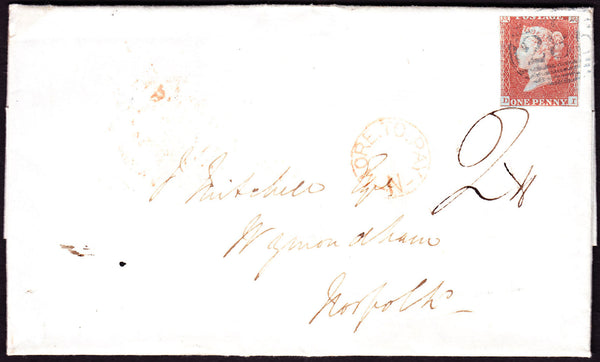 POSTAGE
ONE PENNY
D I
MORE.TO.PAY
2
J Mitchell Esqr
Wymondham
Norfolk